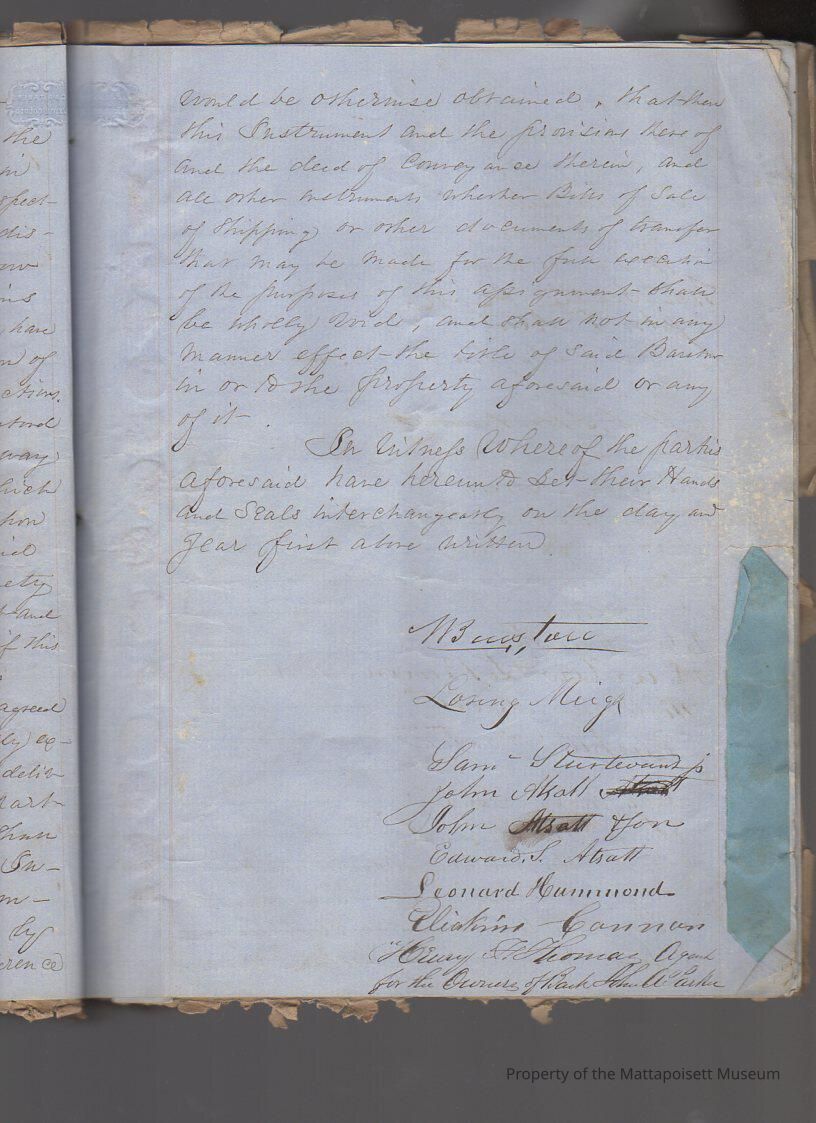 the
in
spect-
dis-
ins
have
n of
ctions.
way
hich
ety
and
f this
agreed
ly ex-
deliv-
part-
by
erence
would be otherwise obtained, that then
this Instrument and the provisions there of
and the deed of Conveyance therein, and
all other instruments whether Bills of Sale
of Shipping) or other documents of transfer
that may be made for the full execution
of the purposes of this assignment shall
be wholly void, and shall not in any
manner effect the title of said Barstow
in or to the property aforesaid or any
of it.
In Witness Whereof the parties
aforesaid have hereunto set their Hands
and Seals interchangeably on the day and
Year first above written
Barstow
Loring Meigs
Sam Sturtevant jr
John Atsatt
John Atsatt & Son
Edward S. Atsatt
Leonard Hammond
Eliakim Cannon
Henry F Thomas Agent
for the Owners of Bark John A Parker
Property of the Mattapoisett Museum